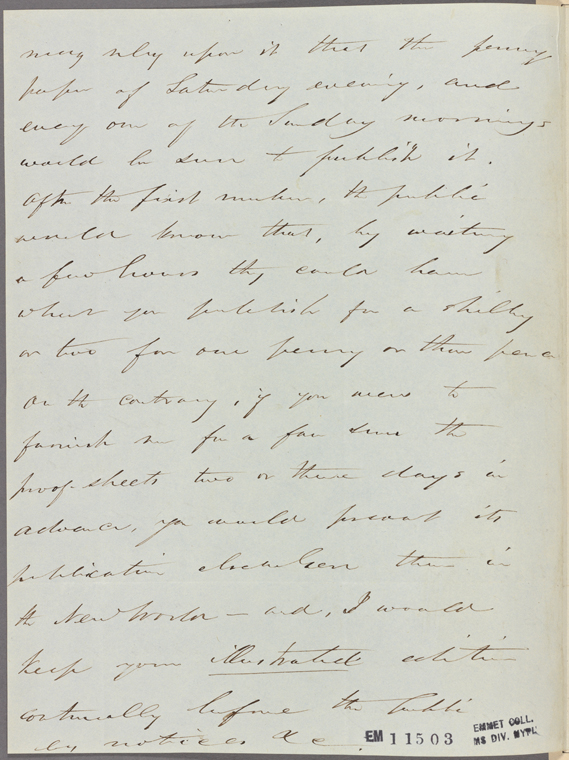 may rely upon it that the penny
paper of Saturday evening, and
every one of the Sunday mornings
would be sure to publish it.
After the first number, the public
would know that, by waiting
a few hours they could have
what you publish for a shilling
or two for one penny or three pence
On the contrary, if you were to
furnish me for a fair sum the
proof-sheets two or three days in
advance, you would prevent its
publication elsewhere than in
the New World — and, I would
keep your illustrated edition
continually before the public
by notices &c.
EM 11503
EMMET COLL.
MS DIV. NYPL